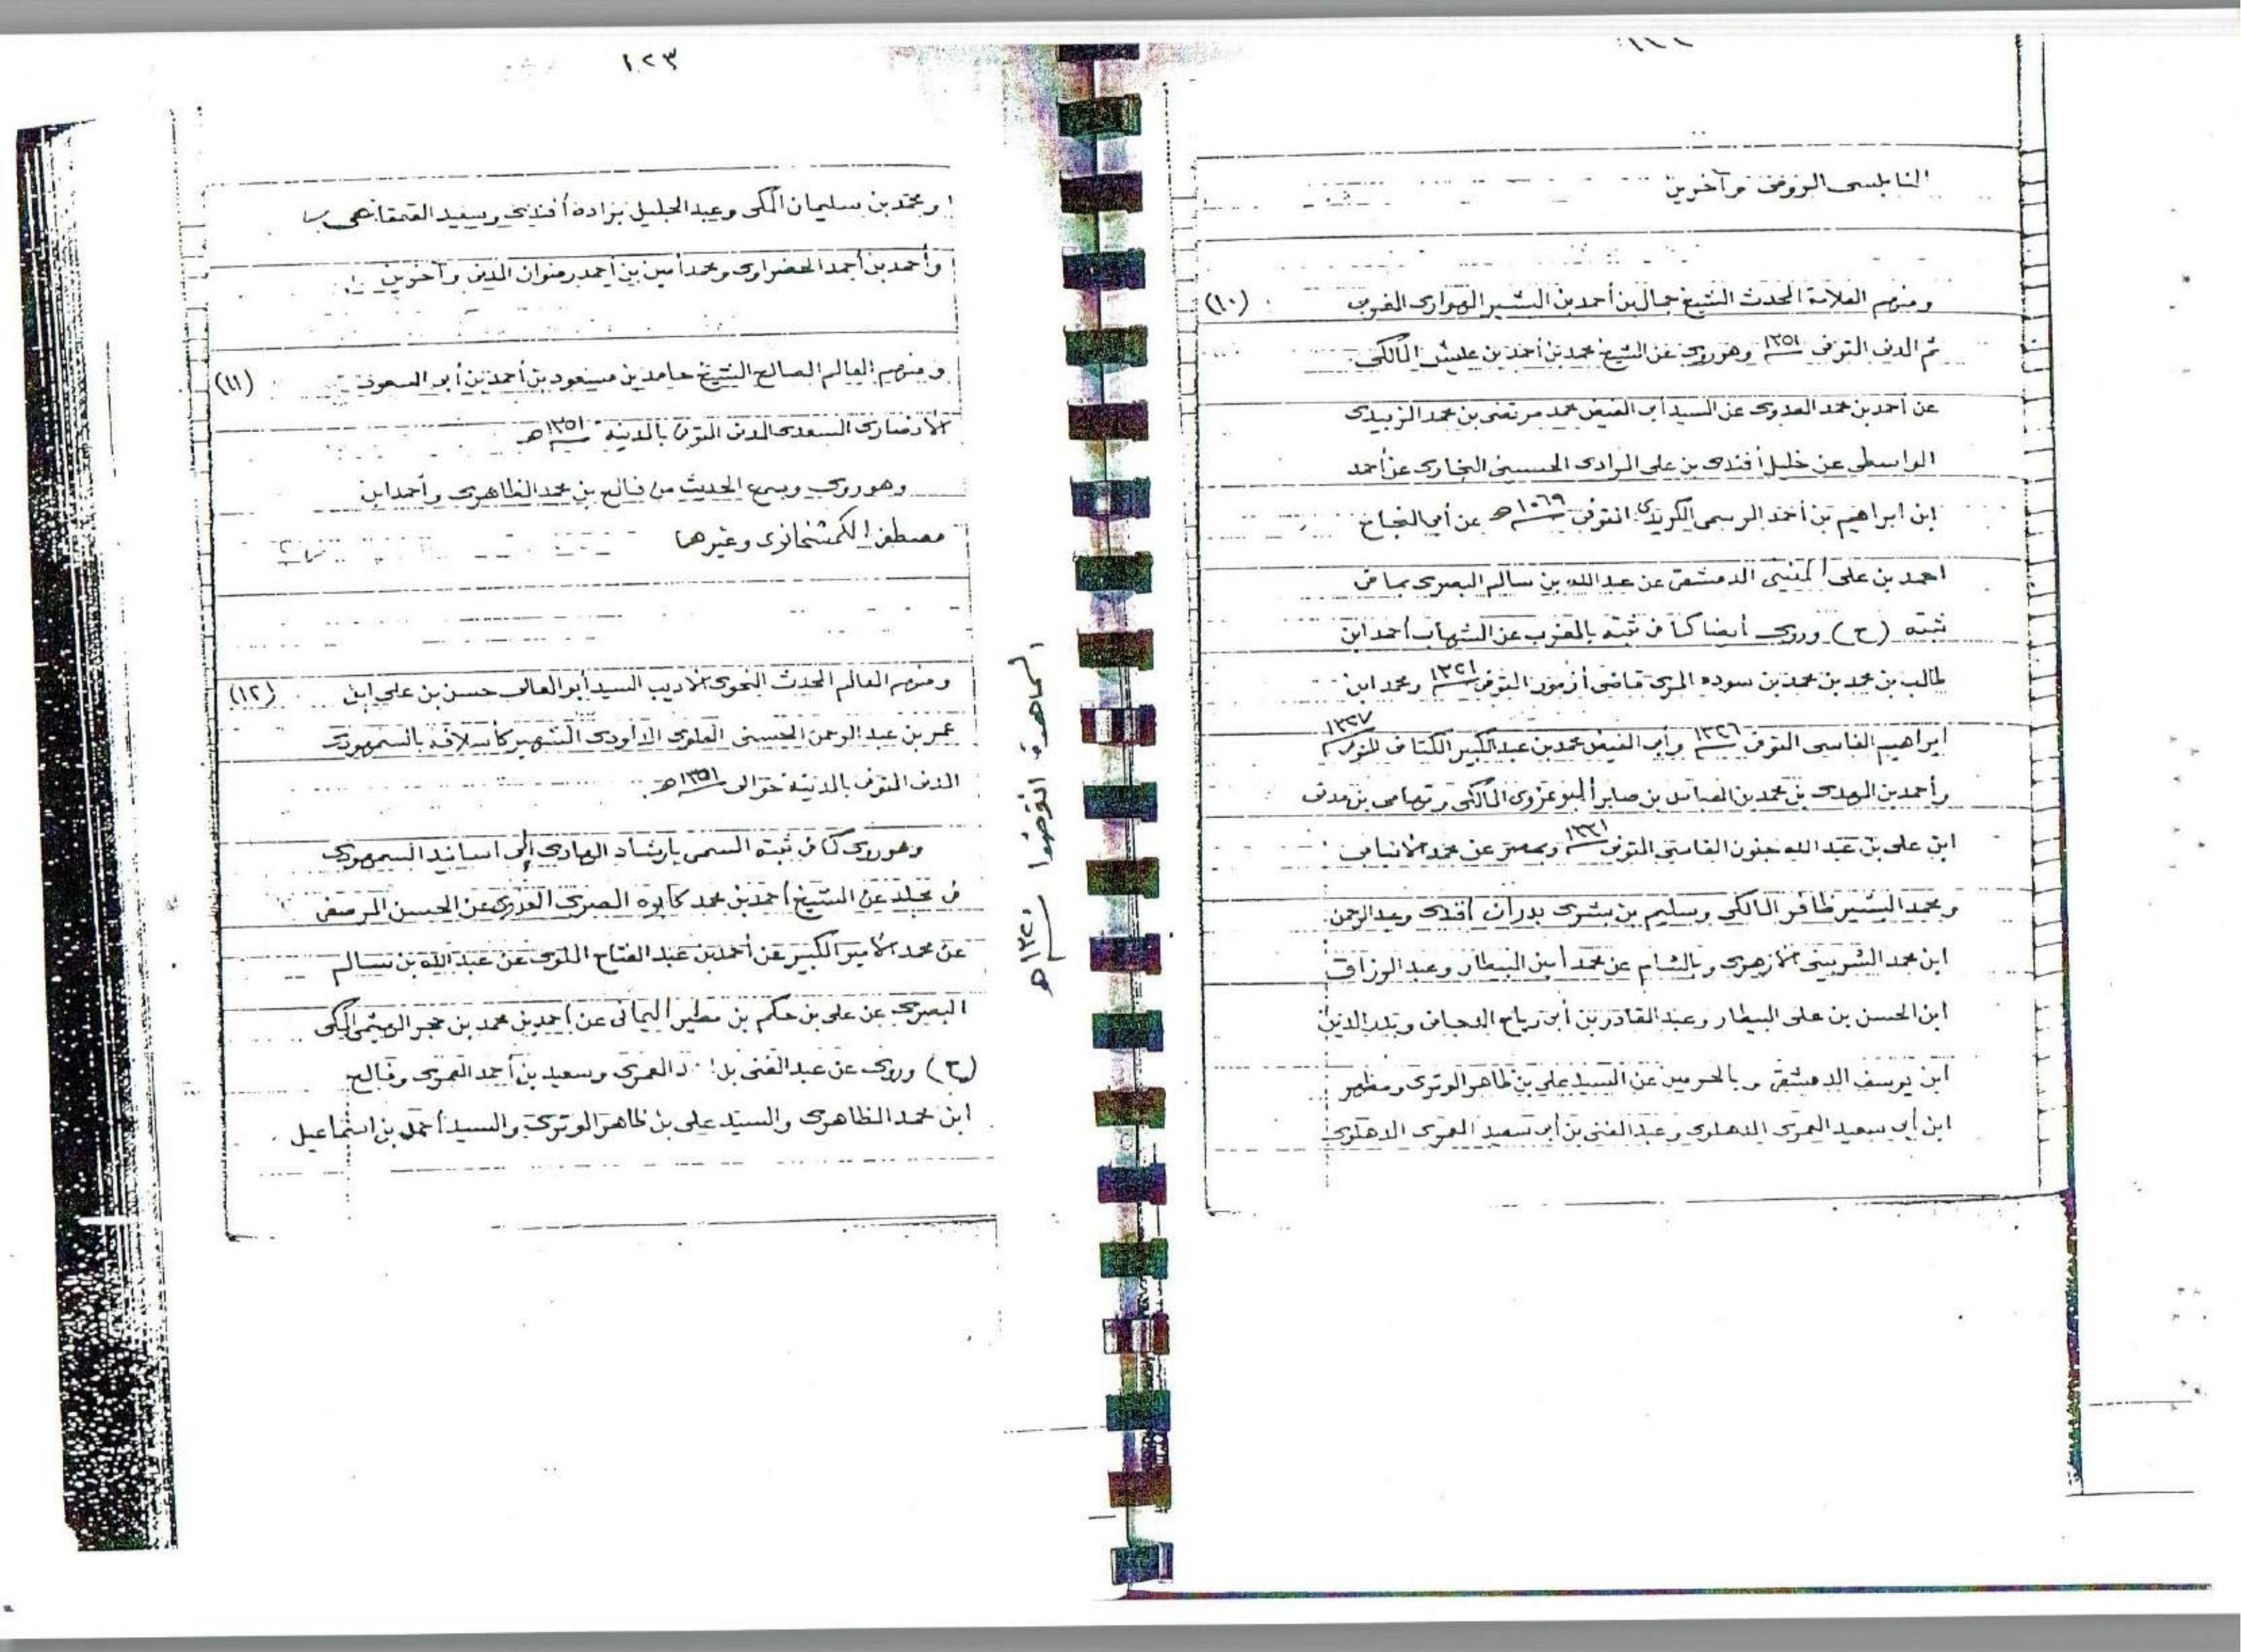 النابلسى الروفى وآخرين
ومنهم العلامة المحدث الشيخ جمال بن أحمد بن البشير الهوارى المغربى (١٠)
ثم المدنى المتوفى ١٣٥١ وهو روى عن الشيخ محمد بن أحمد بن عليش المالكى
عن احمد بن محمد العدوى عن السيد أبى الفيض محمد مرتضى بن محمد الزبيدى
الواسطى عن خليل أفندى بن على المرادى الحسينى البخارى عن أحمد
ابن ابراهيم بن أحمد الرسمى الكريدى المتوفى ١٠٦٩ هـ عن أبى النجاح
احمد بن على المنينى الدمشقى عن عبد الله بن سالم البصرى بما فى
ثبته (ح) وروى أيضا كما فى ثبته بالمغرب عن الشهاب أحمد ابن
طالب بن محمد بن محمد بن سوده المرى قاضى أزمور المتوفى ١٣٢١ ومحمد ابن
ابراهيم الفاسى المتوفى ١٣٢٦ وأبى الفيض محمد بن عبد الكبير الكتانى المتوفى ١٣٢٧
وأحمد بن المهدى بن محمد بن العباس بن صابر البوعزوى المالكى وتهامى بن مدنى
ابن على بن عبد الله جنون الفاسى المتوفى ١٣٣١ وبمصر عن محمد الانبابى
ومحمد البشير ظافر المالكى وسليم بن بشرى بدران أفندى وعبد الرحمن
ابن محمد الشربينى الازهرى وبالشام عن محمد أمين البيطار وعبد الرزاق
ابن الحسن بن على البيطار وعبد القادر بن أبى رباح الدجانى وبدر الدين
ابن يوسف الدمشقى وبالحرمين عن السيد على بن ظاهر الوترى ومظهر
ابن أبى سعيد العمرى الدهلوى وعبد الغنى بن أبى سعيد العمرى الدهلوى
١٢٣
ومحمد بن سليمان المكى وعبد الجليل براده أفندى وسعيد القعقاعى
وأحمد بن أحمد الحضراوى ومحمد أمين بن أحمد رضوان المدنى وآخرين
ومنهم العالم الصالح الشيخ حامد بن مسعود بن أحمد بن أبو السعود (١١)
الأنصارى السعدى المدنى المتوفى بالمدينة ١٣٥١ هـ
وهو روى وسمع الحديث من فالح بن محمد الظاهرى وأحمد ابن
مصطفى الكمشخانوى وغيرهما
ومنهم العالم المحدث النحوى الاديب السيد أبو المعالى حسن بن على ابن (١٢)
عمر بن عبد الرحمن الحسنى العلوى الداودى الشهير كأسلافه بالسمهودى
المدنى المتوفى بالمدينة حوالى ١٣٥١ هـ
وهو روى كما فى ثبته المسمى بارشاد الهادى إلى أسانيد السمهودى
فى مجلد عن الشيخ أحمد بن محمد كابوه المصرى العدوى عن الحسن المرصفى
عن محمد الأمير الكبير عن أحمد بن عبد الفتاح الملوى عن عبد الله بن سالم
البصرى عن على بن حكم بن مطير اليمانى عن أحمد بن محمد بن حجر الهيثمى المكى
(ح) وروى عن عبد الغنى العمرى وسعيد بن أحمد العمرى وفالح
ابن محمد الظاهرى والسيد على بن ظاهر الوترى والسيد أحمد بن اسماعيل